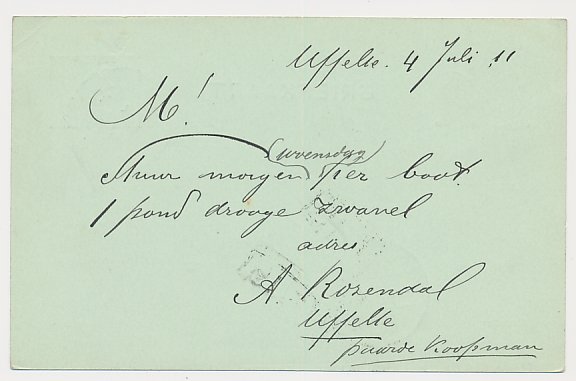 Uffelte. 4 Juli. 11
M!
Stuur morgen (woensdag) per boot
1 pond drooge zwavel
adres
A Rozendal
Uffelte
paarde Koopman